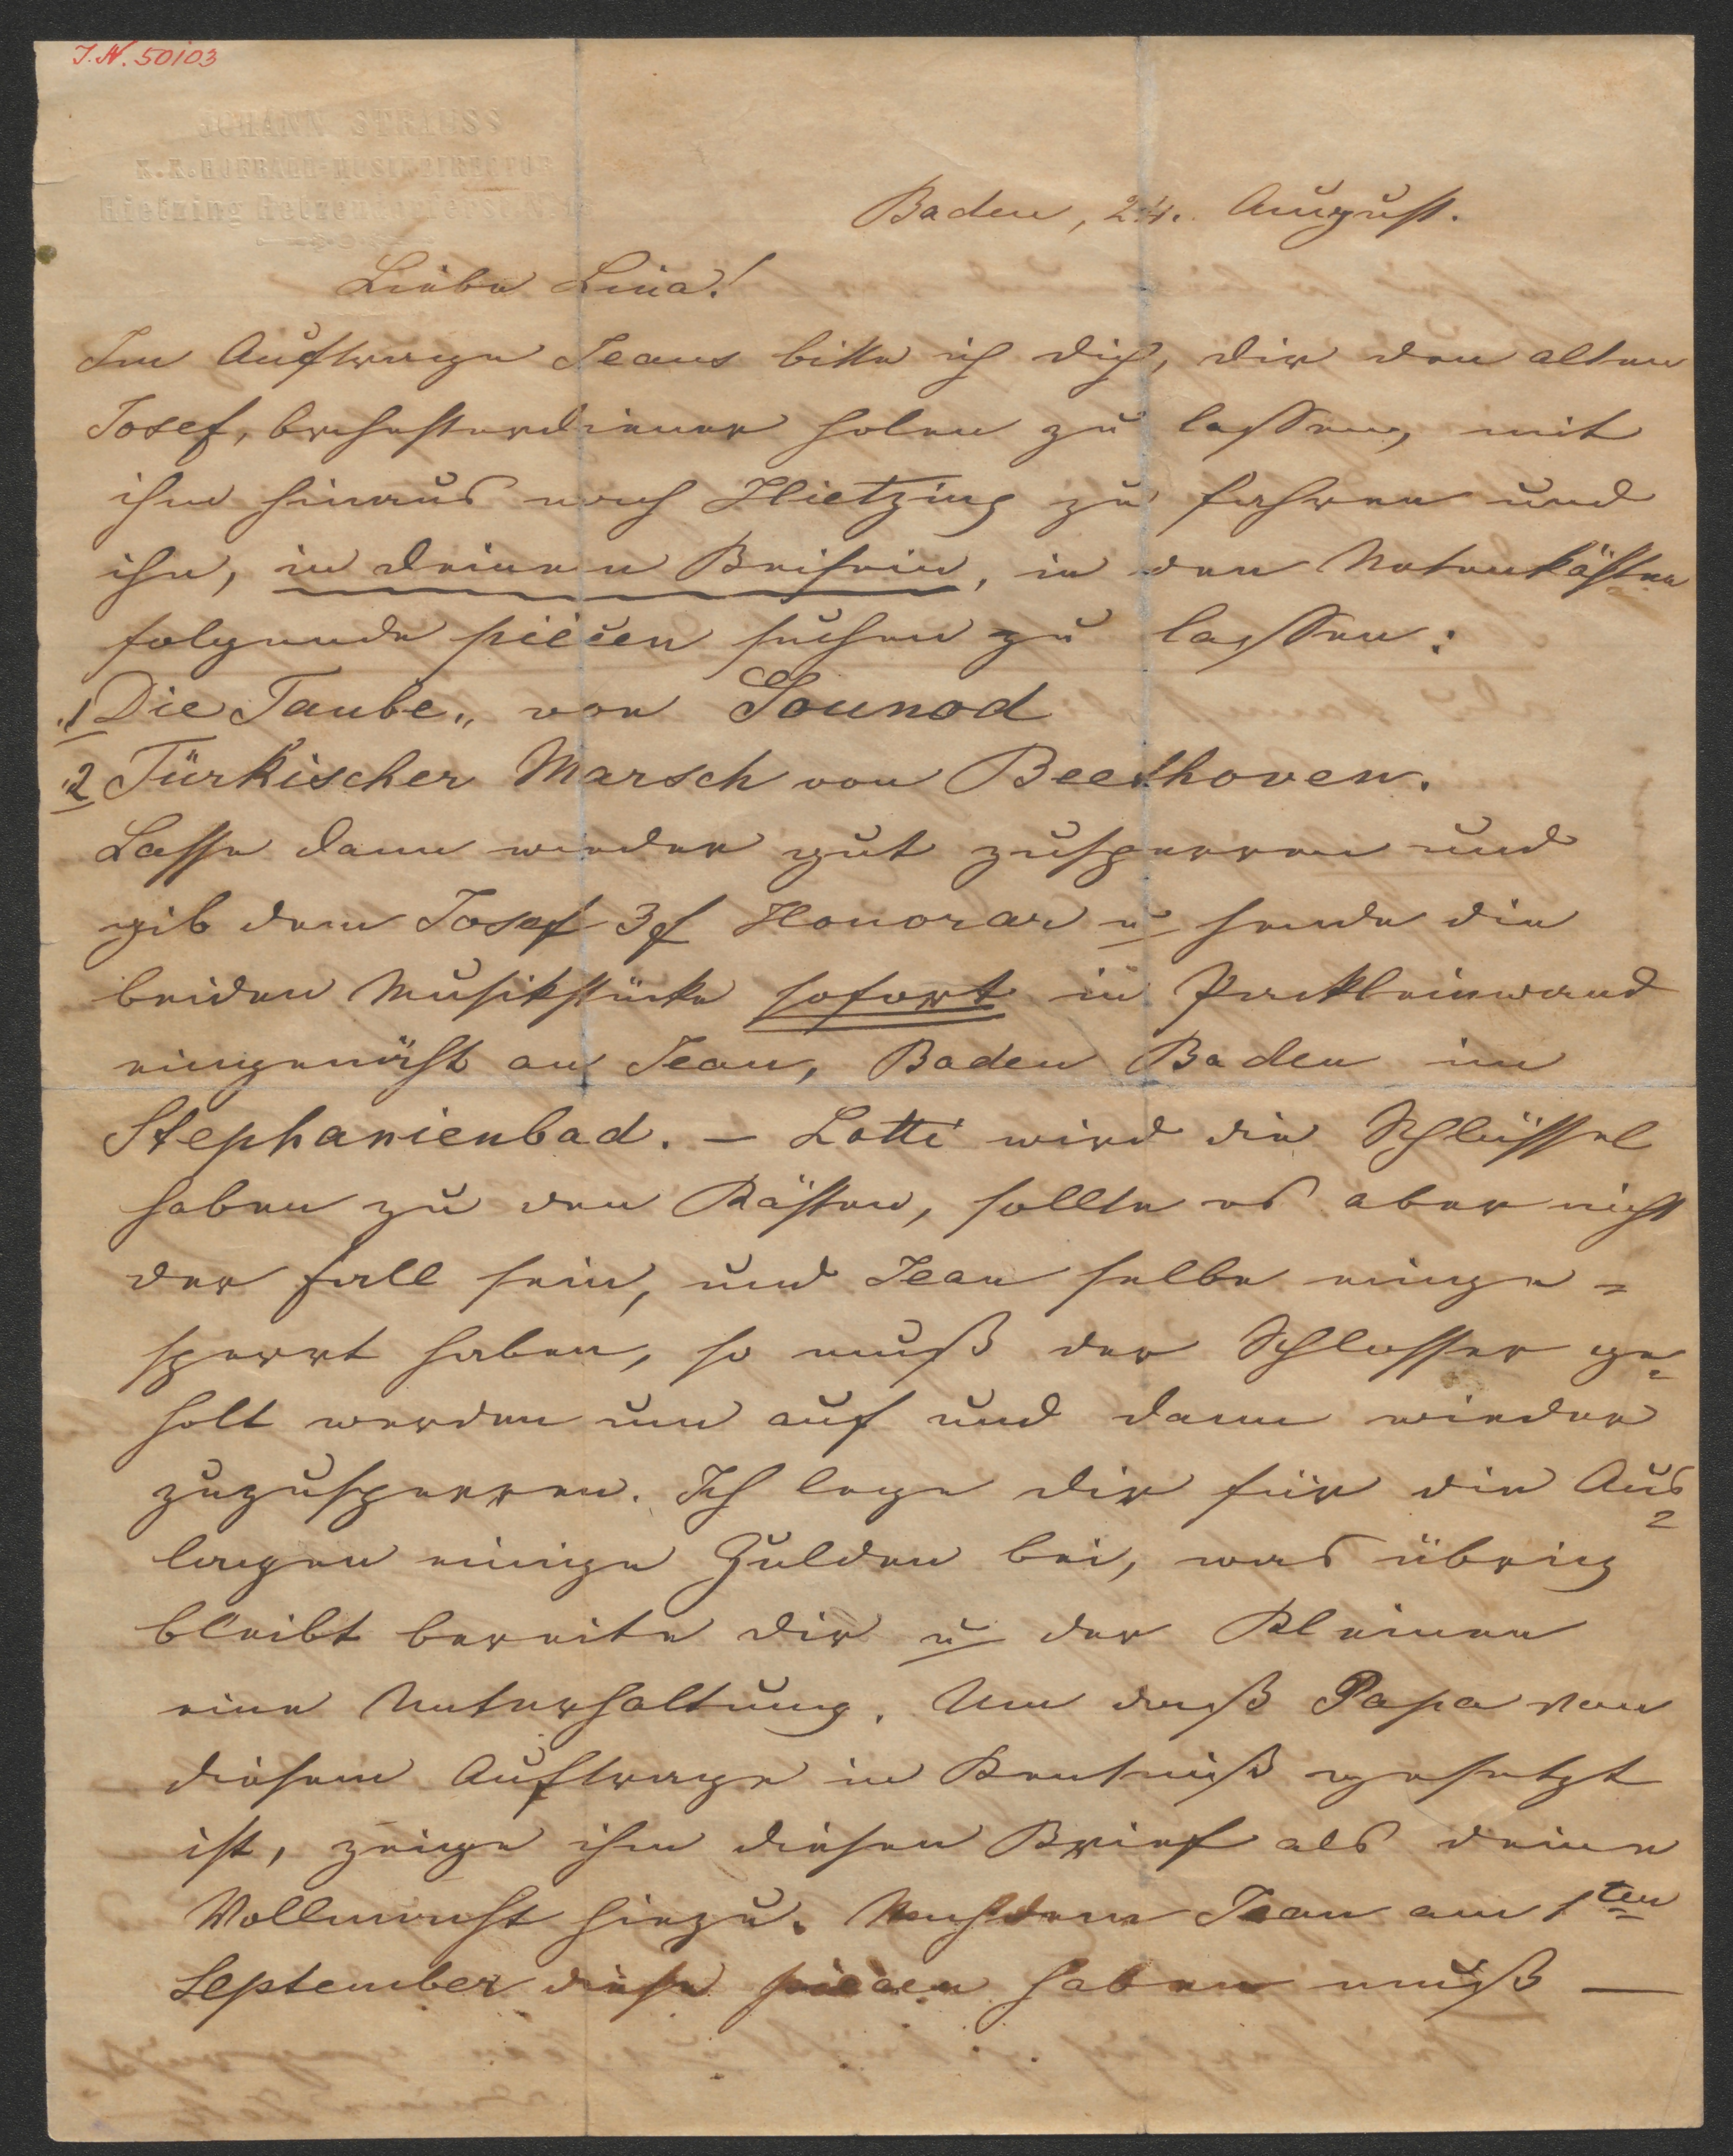 I.N. 50103
JOHANN STRAUSS
K.K. HOFBALL-MUSIKDIRECTOR
Hietzing Hetzendorferstr. N
Baden, 24. August.
Liebe Lina!
Im Auftrage Jeans bitte ich dich, dir den alten
Josef, Orchesterdiener holen zu lassen, mit
ihm hinaus nach Hietzing zu fahren und
ihn, in deinem Beisein, in den Notenkästen
folgende pieçen suchen zu lassen:
1 Die Taube„ von Gounod
2 Türkischer Marsch von Beethoven.
Lasse dann wieder gut zusperren und
gib dem Josef 3 f Honorar u sende die
beiden Musikstücke sofort in Packleinwand
eingenäht an Jean, Baden Baden im
Stephanienbad. – Lotti wird die Schlüssel
haben zu den Kästen, sollte es aber nicht
der fall sein, und Jean selbe einge=
sperrt haben, so muß der Schlosser ge=
holt werden um auf und dann wieder
zuzusperren. Ich lege dir für die Aus=
lagen einige Gulden bei, was übrig
bleibt bereite dir u der Kleinen
eine Unterhaltung. Um daß Papa von
diesem Auftrage in Kentniß gesetzt
ist, zeige ihm diesen Brief als deine
Vollmacht hiezu. Nachdem Jean am 1ten
September diese pieçen haben muß —